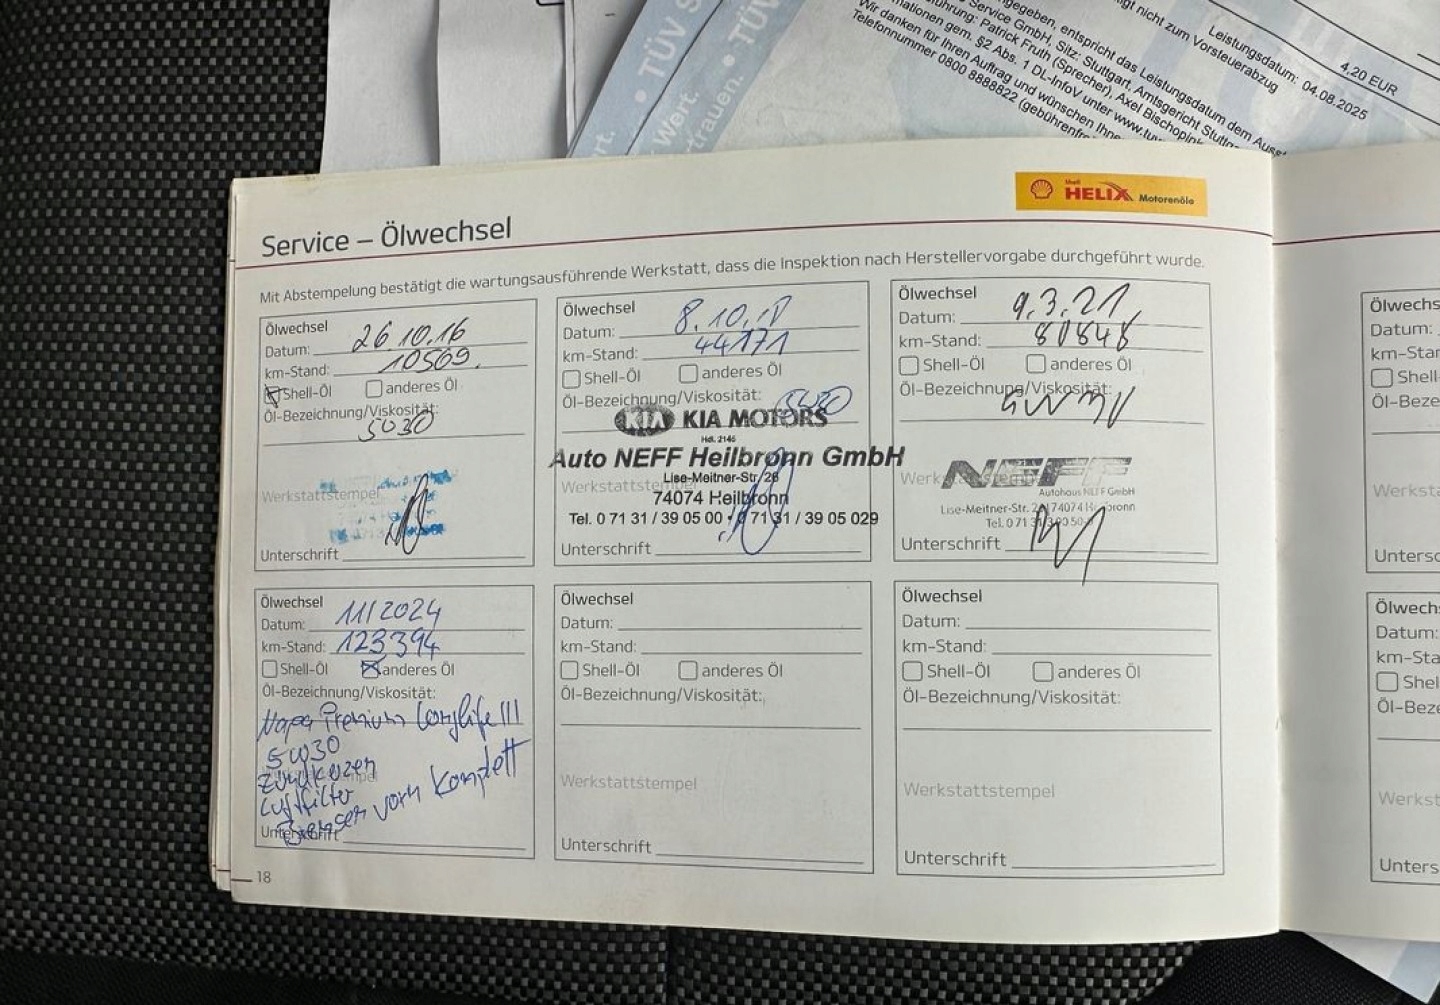 TÜV S
TÜV
Wert.
trauen.
rt.
ngegeben, entspricht das Leistungsdatum dem Auss
Service GmbH, Sitz: Stuttgart, Amtsgericht Stuttg
führung: Patrick Fruth (Sprecher), Axel Bischopin
mationen gem. §2 Abs. 1 DL-InfoV unter www.tuv
Wir danken für Ihren Auftrag und wünschen Ihne
Telefonnummer 0800 8888822 (gebührenfre
igt nicht zum Vorsteuerabzug
Leistungsdatum: 04.08.2025
4,20 EUR
Shell
HELIX Motorenöle
Service – Ölwechsel
Mit Abstempelung bestätigt die wartungsausführende Werkstatt, dass die Inspektion nach Herstellervorgabe durchgeführt wurde.
Ölwechsel
Datum: 26 10.16
km-Stand: 10569.
Shell-Öl anderes Öl
Öl-Bezeichnung/Viskosität:
5030
Werkstattstempel
Unterschrift
Ölwechsel
Datum: 8.10.18
km-Stand: 44171
Shell-Öl anderes Öl
Öl-Bezeichnung/Viskosität: 5W30
KIA KIA MOTORS
Hdl. 2146
Auto NEFF Heilbronn GmbH
Lise-Meitner-Str. 26
Werkstattstempel
74074 Heilbronn
Tel. 0 71 31 / 39 05 00 · 0 71 31 / 39 05 029
Unterschrift
Ölwechsel
Datum: 9.3.21
km-Stand: 80848
Shell-Öl anderes Öl
Öl-Bezeichnung/Viskosität:
Werkstattstempel
NEFF
Autohaus NEFF GmbH
Lise-Meitner-Str. 74074 Heilbronn
Unterschrift
Ölwechsel
Datum: 11/2024
km-Stand: 123394
Shell-Öl anderes Öl
Öl-Bezeichnung/Viskosität:
Napa Premium Longlife III
5W30
Zündkerzen
Luftfilter
Bremsen vorn komplett
Unterschrift
Ölwechsel
Datum:
km-Stand:
Shell-Öl anderes Öl
Öl-Bezeichnung/Viskosität:
Werkstattstempel
Unterschrift
Ölwechsel
Datum:
km-Stand:
Shell-Öl anderes Öl
Öl-Bezeichnung/Viskosität:
Werkstattstempel
Unterschrift
18
Ölwechs
Datum:
km-Star
Shell-
Öl-Beze
Werkst
Untersc
Ölwech
Datum:
km-Sta
Shel
Öl-Bez
Werkst
Unters